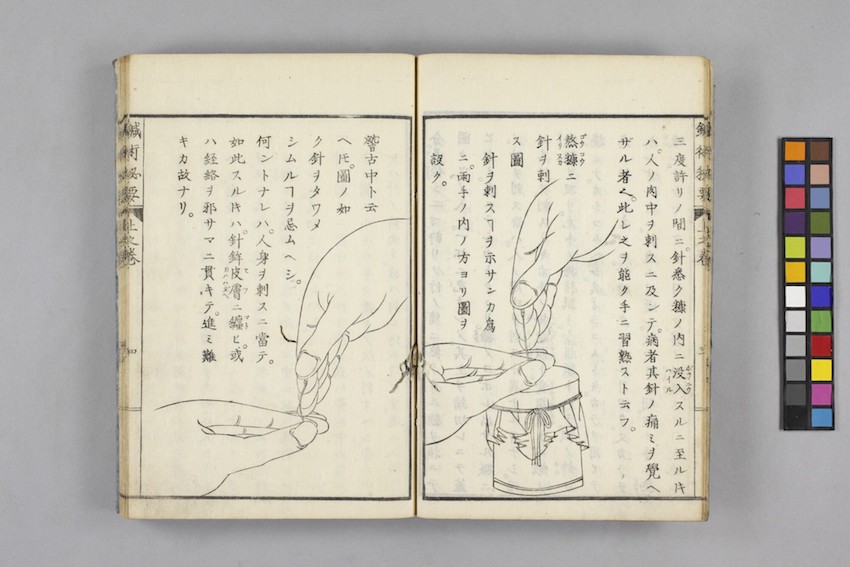 三度許リノ間ニ。針悉ク糠ノ内ニ没入スルニ至ル𪜈
ハ。人ノ肉中ヲ刺スニ及ンテ。病者其針ノ痛ミヲ覺ヘ
ザル者ヘ。此レ之ヲ能ク手ニ習熟スト云フ。
熬糠ニ
針ヲ刺
ス圖
針ヲ刺スヿヲ示サンカ爲
ニ。兩手ノ内ノ方ヨリ圖ヲ
設ク。
鍼術秘要
上之巻
三
稽古中ト云
ヘ𪜈。圖ノ如
ク針ヲタワメ
シムルヿヲ忌ムヘシ。
何ントナレハ。人身ヲ刺スニ當テ。
如此スル𪜈ハ。針鋒皮膚ニ纏ヒ。或
ハ経絡ヲ邪サマニ貫キテ。進ミ難
キカ故ナリ。
鍼術秘要
上之巻
四